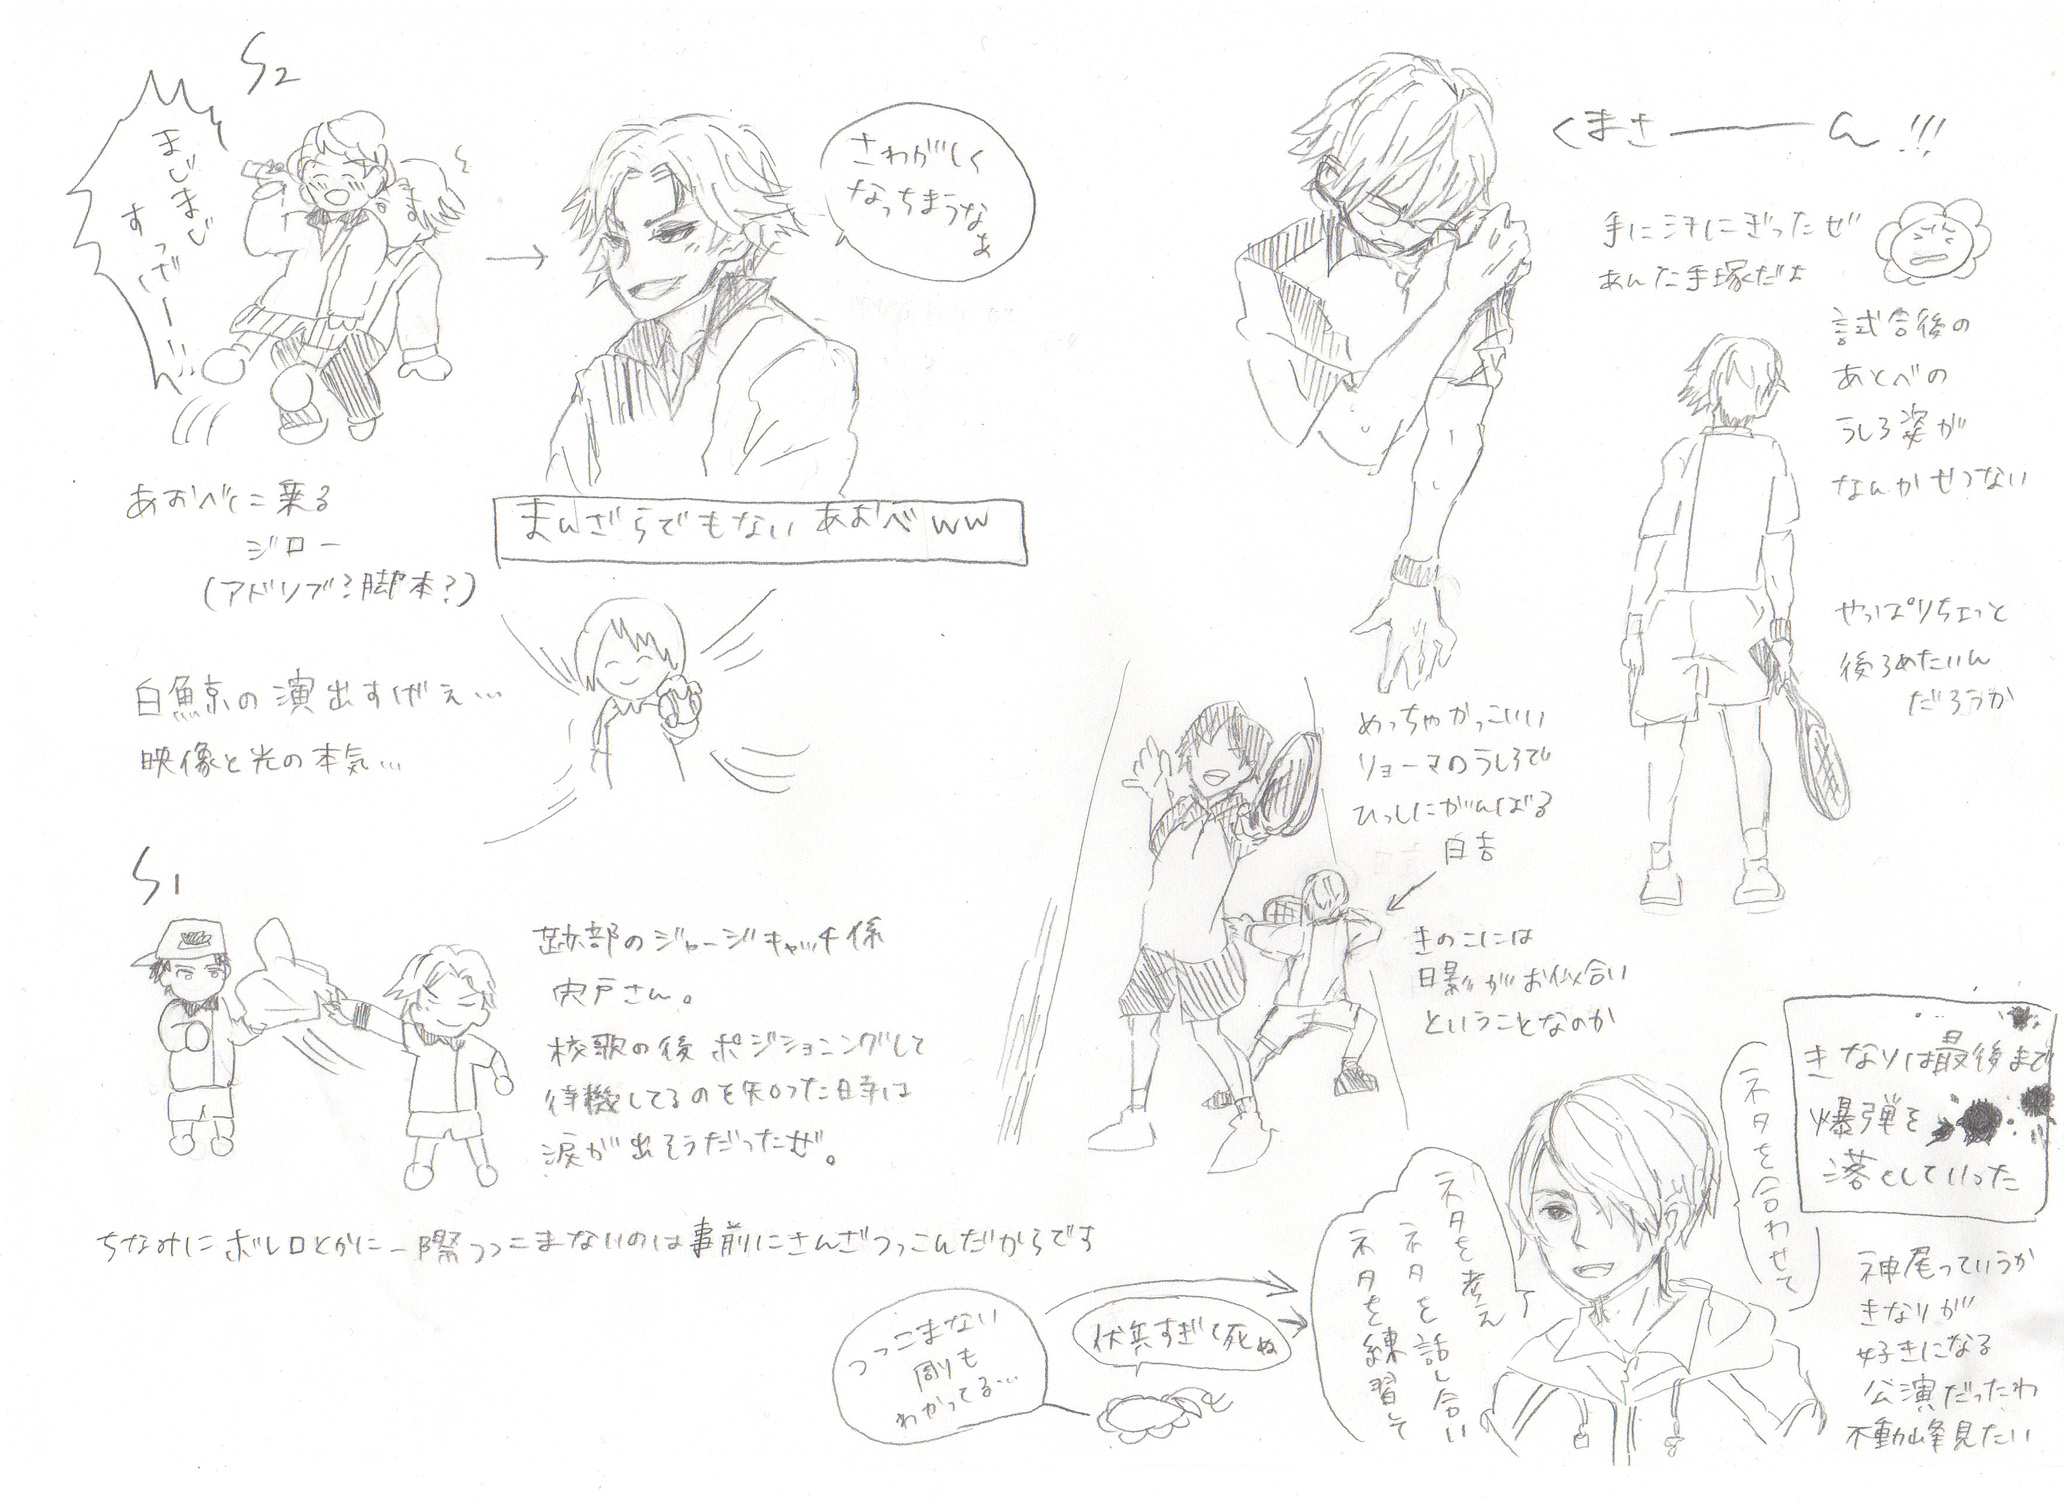 S2
まじまじ
すっげーー!!
さわがしく
なっちまうな
ぁ
あおべに乗る
ジロー
(アドリブ?脚本?)
まんざらでもないあおべww
白魚京の演出すげぇ…
映像と光の本気…
S1
跡部のジャージキャッチ係
宍戸さん。
校歌の後ポジショニングして
待機してるのを知った時は
涙が出そうだったぜ。
ちなみにボレロとかに一際つっこまないのは事前にさんざつっこんだからです
くまさーーん!!!
手に汗にぎったぜ
あんた手塚だよ
試合後の
あとべの
うしろ姿が
なんかせつない
やっぱりちょっと
後ろめたいん
だろうか
めっちゃかっこいい
リョーマのうしろで
ひっしにがんばる
日吉
きのこには
日影がお似合い
ということなのか
きなりは最後まで
爆弾を
落としていった
ネタを合わせて
ネタを考え
ネタを話し合い
ネタを練習して
つっこまない
周りも
わかってる…
伏兵すぎて死ぬ
神尾っていうか
きなりが
好きになる
公演だったわ
不動峰見たい